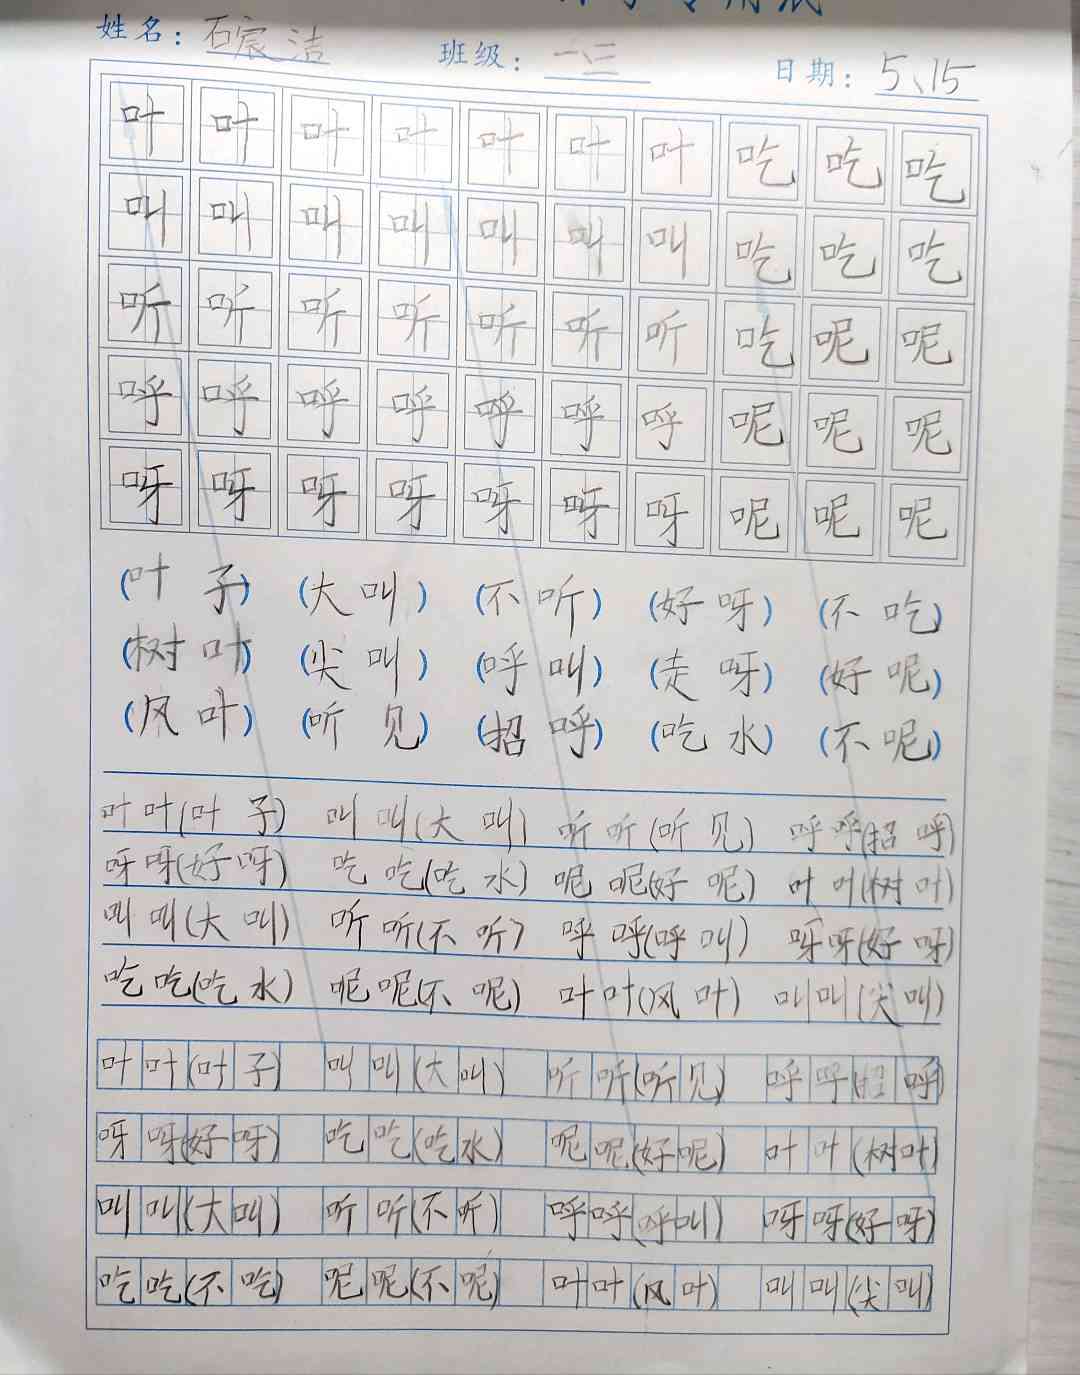 姓名：石宸洁 班级：一、三 日期：5、15
叶 叶 叶 叶 叶 叶 叶 吃 吃 吃
叫 叫 叫 叫 叫 叫 叫 吃 吃 吃
听 听 听 听 听 听 听 吃 呢 呢
呼 呼 呼 呼 呼 呼 呼 呢 呢 呢
呀 呀 呀 呀 呀 呀 呀 呢 呢 呢
(叶子) (大叫) (不听) (好呀) (不吃)
(树叶) (尖叫) (呼叫) (走呀) (好呢)
(风叶) (听见) (招呼) (吃水) (不呢)
叶叶(叶子) 叫叫(大叫) 听听(听见) 呼呼(招呼)
呀呀(好呀) 吃吃(吃水) 呢呢(好呢) 叶叶(树叶)
叫叫(大叫) 听听(不听) 呼呼(呼叫) 呀呀(好呀)
吃吃(吃水) 呢呢(不呢) 叶叶(风叶) 叫叫(尖叫)
叶叶(叶子) 叫叫(大叫) 听听(听见) 呼呼(招呼)
呀呀(好呀) 吃吃(吃水) 呢呢(好呢) 叶叶(树叶)
叫叫(大叫) 听听(不听) 呼呼(呼叫) 呀呀(好呀)
吃吃(不吃) 呢呢(不呢) 叶叶(风叶) 叫叫(尖叫)